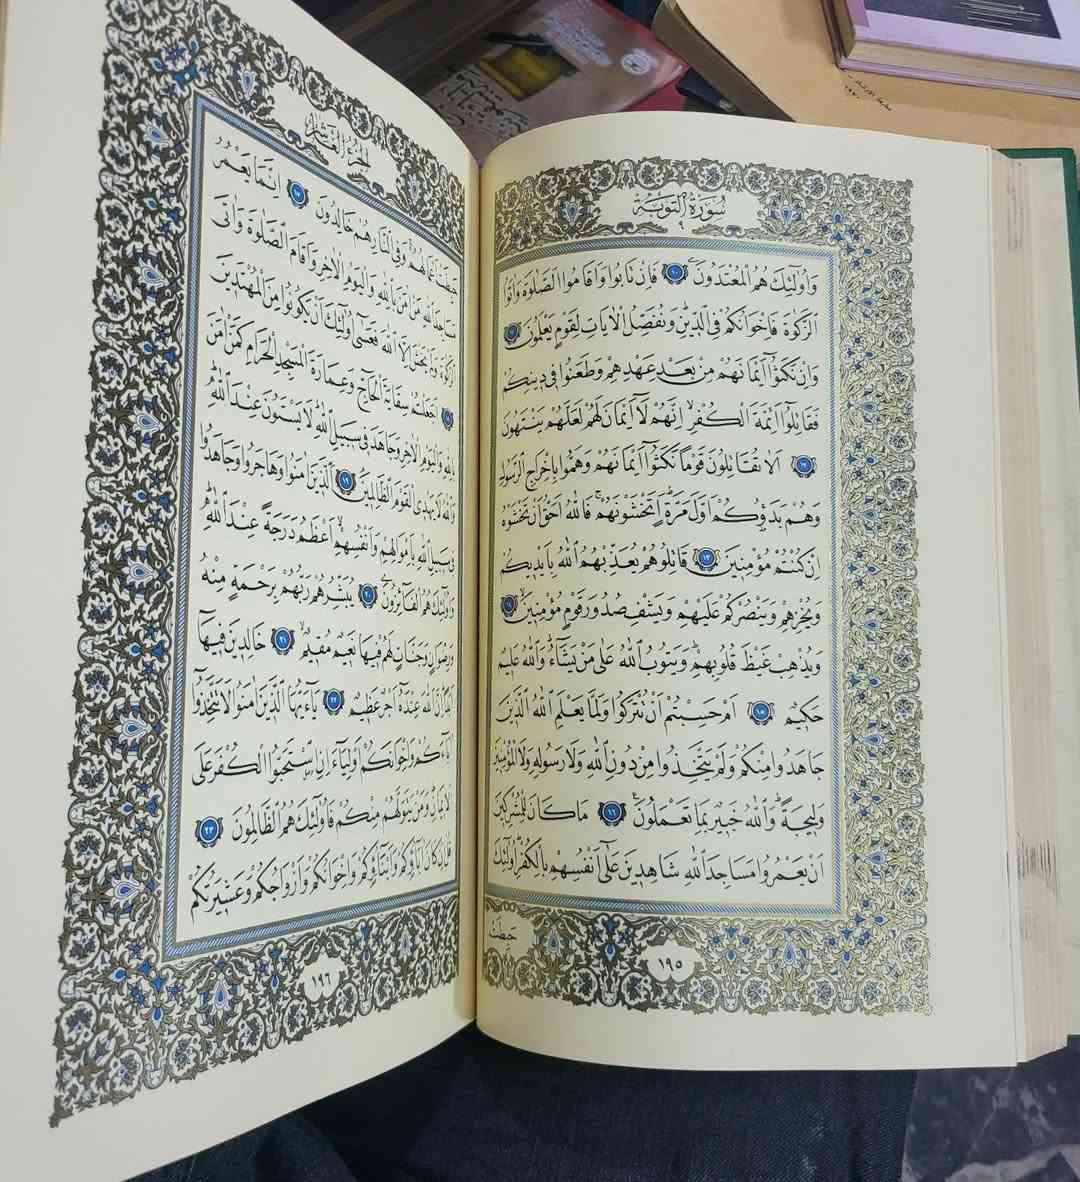 سُورَةُ التَّوْبَةِ
وَأُولٰئِكَ هُمُ الْمُعْتَدُونَ ﴿١٠﴾ فَإِنْ تَابُوا وَأَقَامُوا الصَّلٰوةَ وَاٰتَوُا
الزَّكٰوةَ فَإِخْوَانُكُمْ فِي الدِّينِ وَنُفَصِّلُ الْاٰيَاتِ لِقَوْمٍ يَعْلَمُونَ ﴿١١﴾
وَإِنْ نَكَثُوا أَيْمَانَهُمْ مِنْ بَعْدِ عَهْدِهِمْ وَطَعَنُوا فِي دِينِكُمْ
فَقَاتِلُوا أَئِمَّةَ الْكُفْرِ إِنَّهُمْ لَا أَيْمَانَ لَهُمْ لَعَلَّهُمْ يَنْتَهُونَ
﴿١٢﴾ أَلَا تُقَاتِلُونَ قَوْمًا نَكَثُوا أَيْمَانَهُمْ وَهَمُّوا بِإِخْرَاجِ الرَّسُولِ
وَهُمْ بَدَؤُكُمْ أَوَّلَ مَرَّةٍ أَتَخْشَوْنَهُمْ فَاللّٰهُ أَحَقُّ أَنْ تَخْشَوْهُ
إِنْ كُنْتُمْ مُؤْمِنِينَ ﴿١٣﴾ قَاتِلُوهُمْ يُعَذِّبْهُمُ اللّٰهُ بِأَيْدِيكُمْ
وَيُخْزِهِمْ وَيَنْصُرْكُمْ عَلَيْهِمْ وَيَشْفِ صُدُورَ قَوْمٍ مُؤْمِنِينَ ﴿١٤﴾
وَيُذْهِبْ غَيْظَ قُلُوبِهِمْ وَيَتُوبُ اللّٰهُ عَلٰى مَنْ يَشَاءُ وَاللّٰهُ عَلِيمٌ
حَكِيمٌ ﴿١٥﴾ أَمْ حَسِبْتُمْ أَنْ تُتْرَكُوا وَلَمَّا يَعْلَمِ اللّٰهُ الَّذِينَ
جَاهَدُوا مِنْكُمْ وَلَمْ يَتَّخِذُوا مِنْ دُونِ اللّٰهِ وَلَا رَسُولِهِ وَلَا الْمُؤْمِنِينَ
وَلِيجَةً وَاللّٰهُ خَبِيرٌ بِمَا تَعْمَلُونَ ﴿١٦﴾ مَا كَانَ لِلْمُشْرِكِينَ
أَنْ يَعْمُرُوا مَسَاجِدَ اللّٰهِ شَاهِدِينَ عَلٰى أَنْفُسِهِمْ بِالْكُفْرِ أُولٰئِكَ
حَبِطَتْ
١٩٥
اَلْجُزْءُ الْعَاشِرُ
حَبِطَتْ أَعْمَالُهُمْ وَفِي النَّارِ هُمْ خَالِدُونَ ﴿١٧﴾ إِنَّمَا يَعْمُرُ
مَسَاجِدَ اللّٰهِ مَنْ اٰمَنَ بِاللّٰهِ وَالْيَوْمِ الْاٰخِرِ وَأَقَامَ الصَّلٰوةَ وَاٰتَى
الزَّكٰوةَ وَلَمْ يَخْشَ إِلَّا اللّٰهَ فَعَسٰى أُولٰئِكَ أَنْ يَكُونُوا مِنَ الْمُهْتَدِينَ
﴿١٨﴾ أَجَعَلْتُمْ سِقَايَةَ الْحَاجِّ وَعِمَارَةَ الْمَسْجِدِ الْحَرَامِ كَمَنْ اٰمَنَ
بِاللّٰهِ وَالْيَوْمِ الْاٰخِرِ وَجَاهَدَ فِي سَبِيلِ اللّٰهِ لَا يَسْتَوُونَ عِنْدَ اللّٰهِ
وَاللّٰهُ لَا يَهْدِي الْقَوْمَ الظَّالِمِينَ ﴿١٩﴾ اَلَّذِينَ اٰمَنُوا وَهَاجَرُوا وَجَاهَدُوا
فِي سَبِيلِ اللّٰهِ بِأَمْوَالِهِمْ وَأَنْفُسِهِمْ أَعْظَمُ دَرَجَةً عِنْدَ اللّٰهِ
وَأُولٰئِكَ هُمُ الْفَائِزُونَ ﴿٢٠﴾ يُبَشِّرُهُمْ رَبُّهُمْ بِرَحْمَةٍ مِنْهُ
وَرِضْوَانٍ وَجَنَّاتٍ لَهُمْ فِيهَا نَعِيمٌ مُقِيمٌ ﴿٢١﴾ خَالِدِينَ فِيهَا
أَبَدًا إِنَّ اللّٰهَ عِنْدَهُ أَجْرٌ عَظِيمٌ ﴿٢٢﴾ يَا أَيُّهَا الَّذِينَ اٰمَنُوا لَا تَتَّخِذُوا
اٰبَاءَكُمْ وَإِخْوَانَكُمْ أَوْلِيَاءَ إِنِ اسْتَحَبُّوا الْكُفْرَ عَلَى
الْإِيمَانِ وَمَنْ يَتَوَلَّهُمْ مِنْكُمْ فَأُولٰئِكَ هُمُ الظَّالِمُونَ ﴿٢٣﴾
قُلْ إِنْ كَانَ اٰبَاؤُكُمْ وَأَبْنَاؤُكُمْ وَإِخْوَانُكُمْ وَأَزْوَاجُكُمْ وَعَشِيرَتُكُمْ
١٩٦